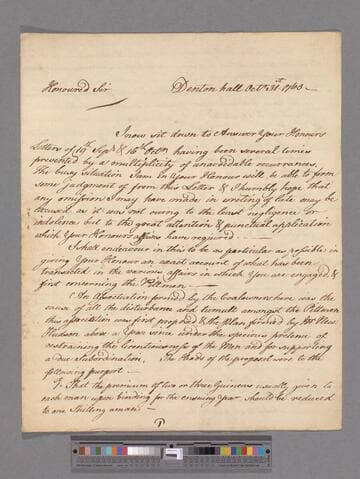 Honoured Sir Denton hall Octr. 31st 1765
I now sit down to Answer Your Honours
Letters of 19th Sept. & 16th Octr. having been several times
prevented by a multiplicity of unavoidable occurrances,
The busy situation I am in Your Honour will be able to form
some judgment of from this Letter & I humbly hope that
any omission I may have made in writing of late may be
excused as it was not owing to the least negligence or
indolence but to the great attention & punctual application
which Your Honours affairs have required
I shall endeavour in this to be as particular as possible in
giving Your Honour an exact account of what has been
transacted in the various affairs in which You are engaged, &
first concerning the Pittmen
An Association formed by the Coalowners here was the
cause of all the disturbance and tumult amongst the Pittmen
this association was first proposed & the plan formed by Mr
Hudson above a Year since under the specious pretence of
restraining the licentiousness of the Men and for supporting
a due Subordination. The heads of the proposal were to the
following purport
1. That the premium of two or three Guineas usually given to
each man upon binding for the ensuing Year should be reduced
to one Shilling a man